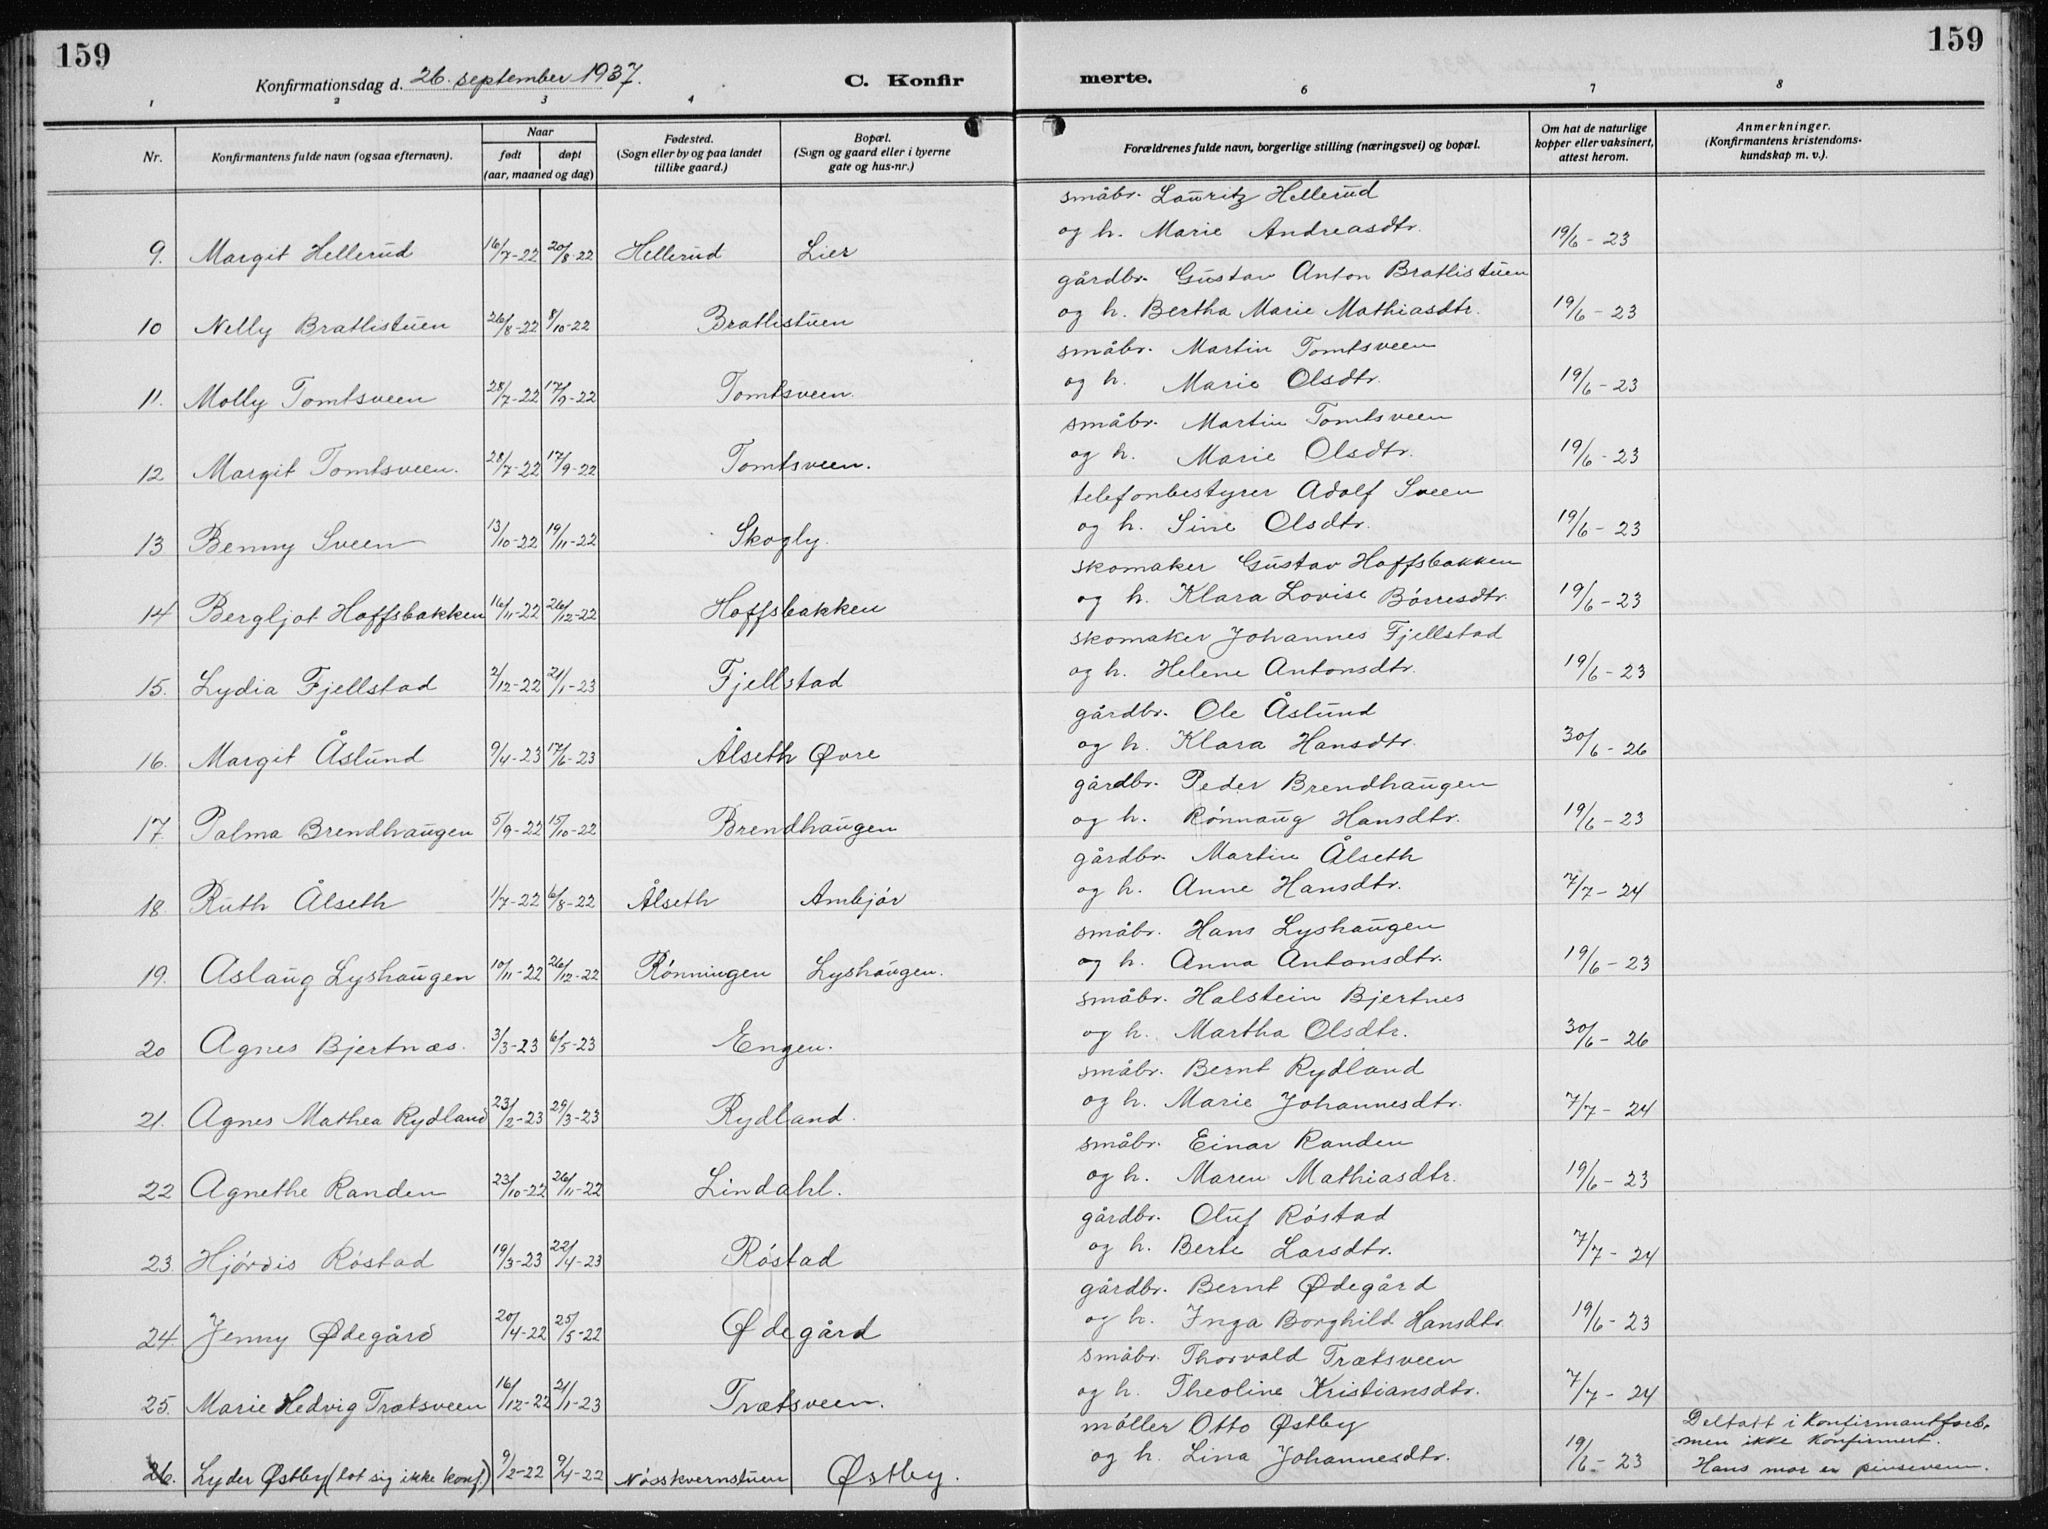 159
159
Konfirmationsdag d. 26. september 1937.
C. Konfirmerte.
1 2 3 4 6 7 8
Nr. Konfirmantens fulde navn (ogsaa efternavn). Naar født døpt (aar, maaned og dag) Fødested. (Sogn eller by og paa landet tillike gaard.) Bopæl. (Sogn og gaard eller i byerne gate og hus-nr.) Forældrenes fulde navn, borgerlige stilling (næringsvei) og bopæl. Om hat de naturlige kopper eller vaksinert, attest herom. Anmerkninger. (Konfirmantens kristendomskundskap m. v.).
småbr. Lauritz Hellerud
9. Margit Hellerud 16/7-22 20/8-22 Hellerud Lier og h. Marie Andreasdtr. 19/6-23
gårdbr. Gustav Anton Bratlistuen
10 Nelly Bratlistuen 26/8-22 8/10-22 Bratlistuen og h. Bertha Marie Mathiasdtr. 19/6-23
småbr. Martin Tomtsveen
11. Molly Tomtsveen 28/7-22 17/9-22 Tomtsveen. og h. Marie Olsdtr. 19/6-23
småbr. Martin Tomtsveen
12 Margit Tomtsveen. 28/7-22 17/9-22 Tomtsveen. og h. Marie Olsdtr. 19/6-23
telefonbestyrer Adolf Sveen
13 Benny Sveen 13/10-22 19/11-22 Skogly. og h. Sine Olsdtr. 19/6-23
skomaker Gustav Hoffsbakken
14 Bergljot Hoffsbakken 16/11-22 26/12-22 Hoffsbakken og h. Klara Lovise Børresdtr. 19/6-23
skomaker Johannes Fjellstad
15. Lydia Fjellstad 2/12-22 21/1-23 Fjellstad og h. Helene Antonsdtr. 19/6-23
gårdbr. Ole Åslund
16. Margit Åslund 9/4-23 17/6-23 Ålseth Øvre og h. Klara Hansdtr. 30/6-26
gårdbr. Peder Brendhaugen
17. Palma Brendhaugen 5/9-22 15/10-22 Brendhaugen og h. Rønnaug Hansdtr. 19/6-23
gårdbr. Martin Ålseth
18. Ruth Ålseth 1/7-22 6/8-22 Ålseth Ambjør og h. Anne Hansdtr. 7/7-24
småbr. Hans Lyshaugen
19. Aslaug Lyshaugen 10/11-22 26/12-22 Rønningen Lyshaugen. og h. Anna Antonsdtr. 19/6-23
småbr. Halstein Bjertnes
20 Agnes Bjertnæs. 3/3-23 6/5-23 Engen. og h. Martha Olsdtr. 30/6-26
småbr. Bernt Rydland
21. Agnes Mathea Rydland 23/2-23 29/3-23 Rydland. og h. Marie Johannesdtr. 7/7-24
småbr. Einar Randen
22 Agnethe Randen 23/10-22 26/11-22 Lindahl. og h. Maren Mathiasdtr. 19/6-23
gårdbr. Oluf Røstad
23. Hjørdis Røstad 19/3-23 22/4-23 Røstad og h. Berte Larsdtr. 7/7-24
gårdbr. Bernt Ødegård
24. Jenny Ødegård 20/4-22 25/5-22 Ødegård og h. Inga Borghild Hansdtr. 19/6-23
småbr. Thorvald Trætsveen
25. Marie Hedvig Trætsveen 16/12-22 21/1-23 Trætsveen. og h. Theoline Kristiansdtr. 7/7-24
møller Otto Østby Deltatt i Konfirmantforb. men ikke konfirmert.
26. Lyder Østby (lot sig ikke konf.) 9/2-22 9/4-22 Nøsskvernstuen Østby. og h. Lina Johannesdtr. 19/6-23 Hans mor er pinseven.